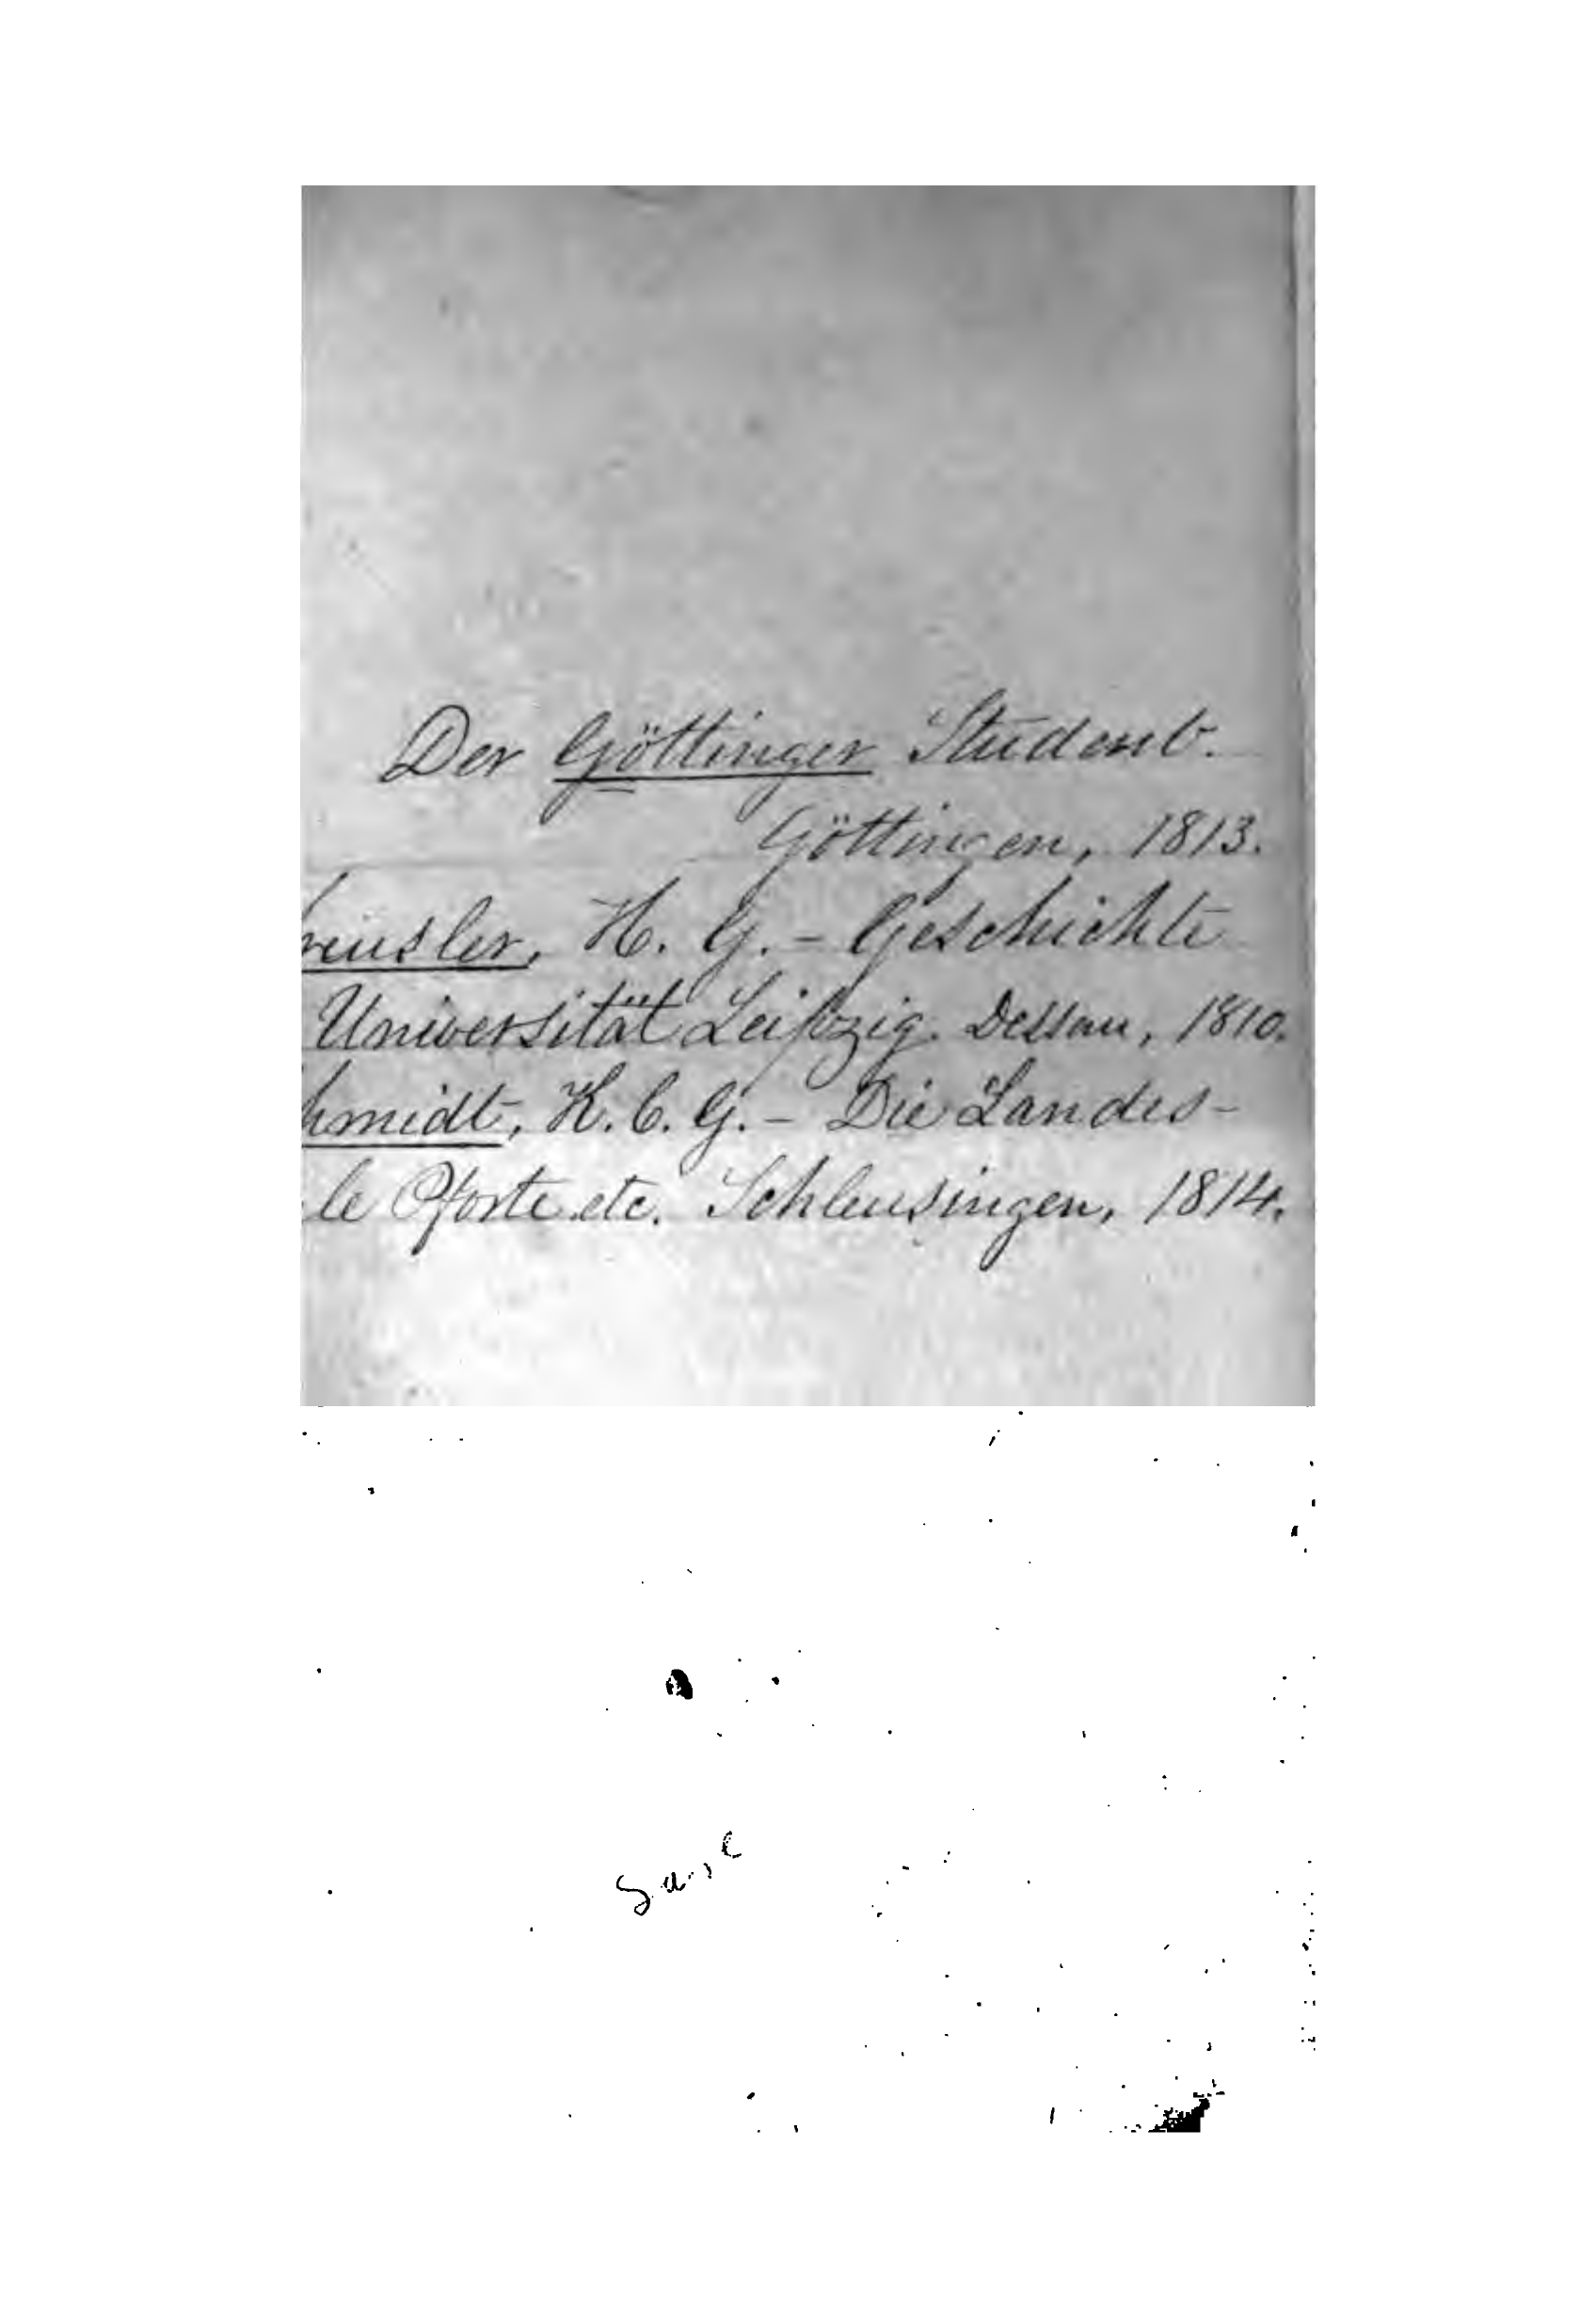 Der Göttinger Student.
Göttingen, 1813.
reusler, H. G. - Geschichte
Universität Leipzig. Dessau, 1810.
hmidt, K. C. G. - Die Landes-
le Pforte etc. Schleusingen, 1814.